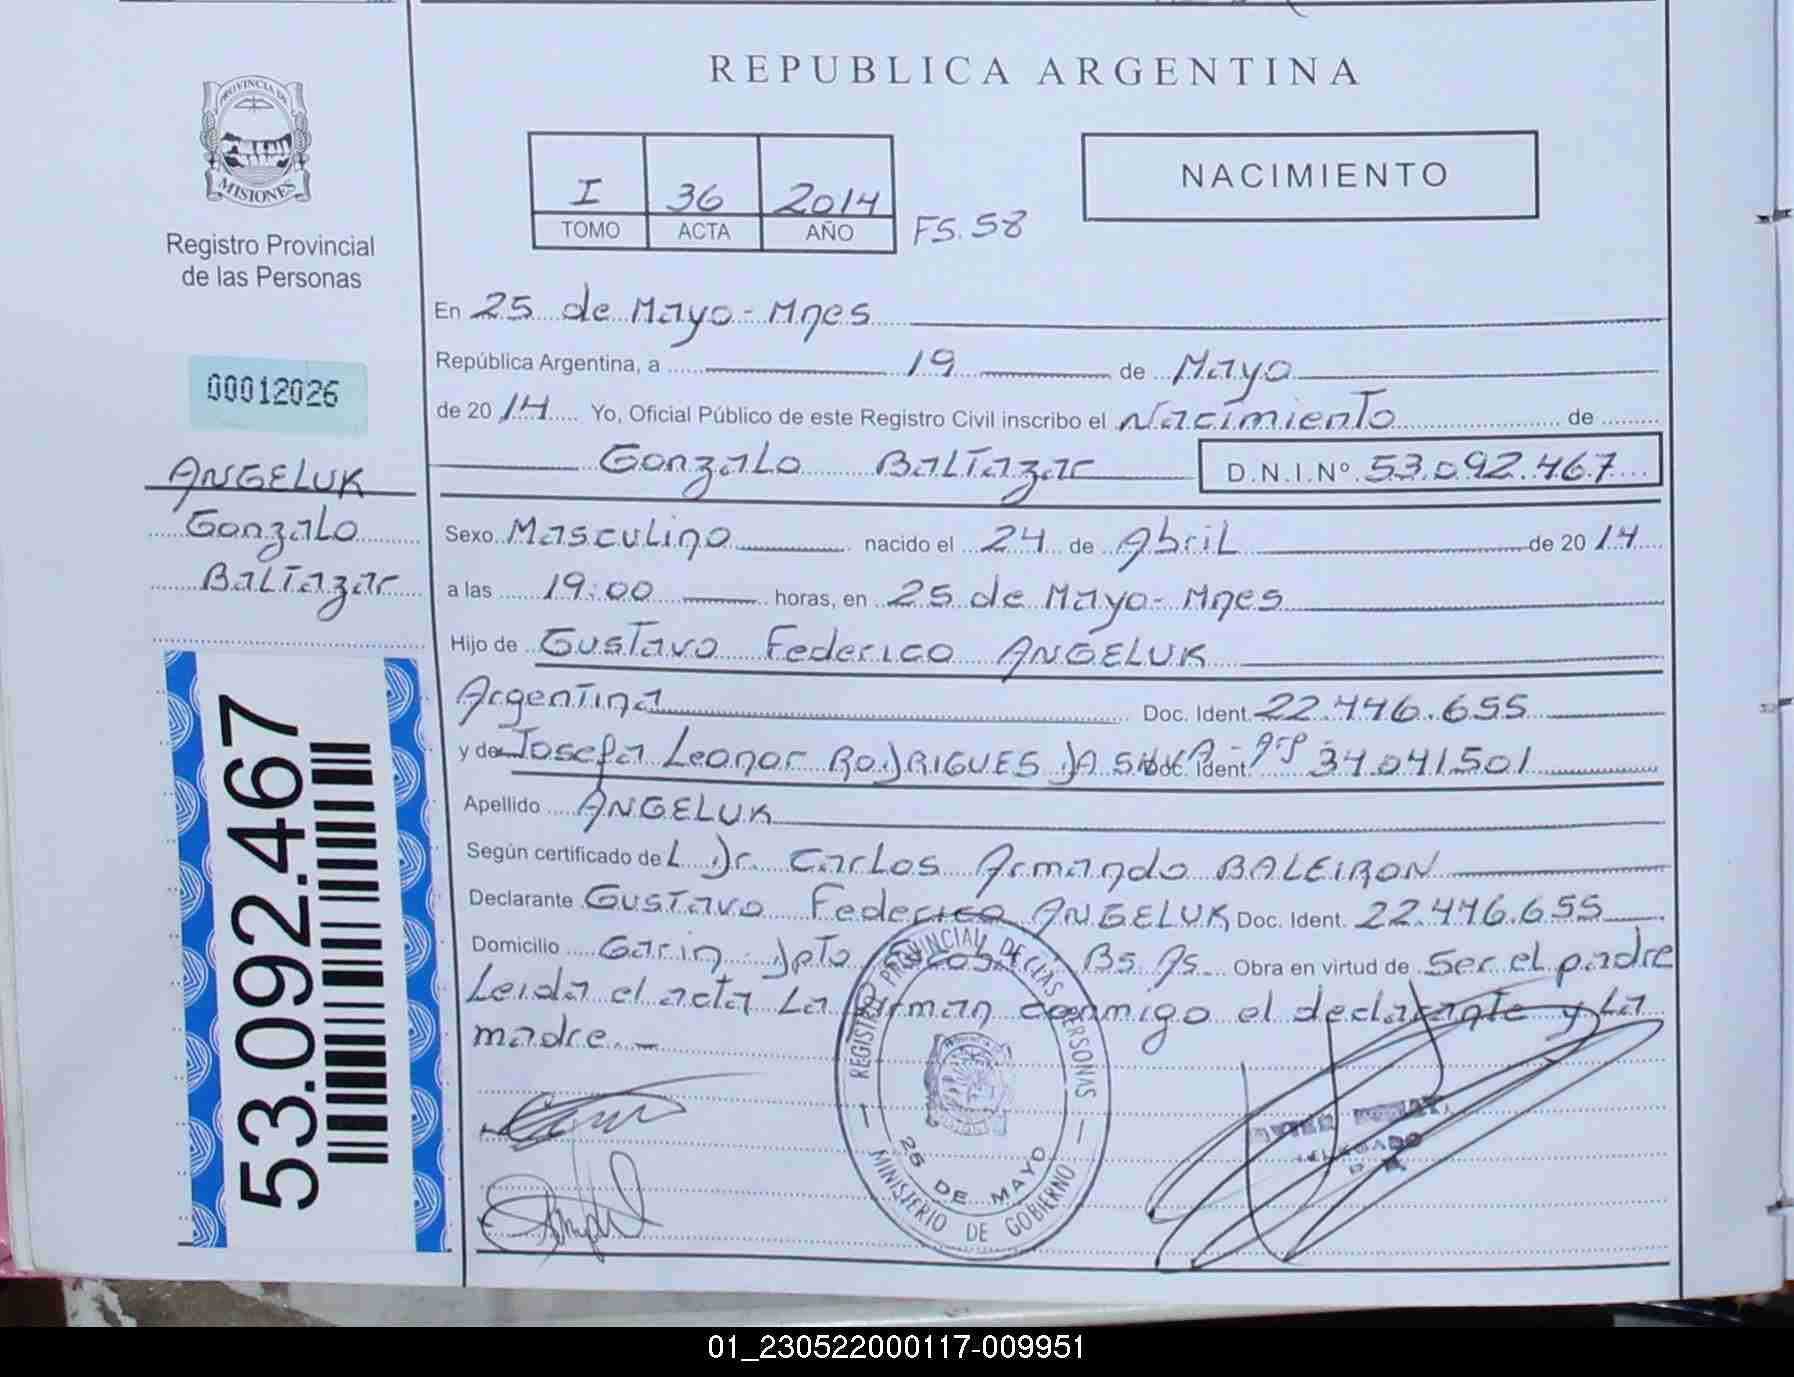 REPUBLICA ARGENTINA
PROVINCIA DE
MISIONES
Registro Provincial
de las Personas
00012026
ANGELUK
Gonzalo
Baltazar
53.092.467
I 36 2014
TOMO ACTA AÑO
FS. 58
NACIMIENTO
En 25 de Mayo - Mnes
República Argentina, a 19 de Mayo
de 2014 Yo, Oficial Público de este Registro Civil inscribo el Nacimiento de
Gonzalo Baltazar D.N.I.Nº 53.092.467
Sexo Masculino nacido el 24 de Abril de 2014
a las 19:00 horas, en 25 de Mayo - Mnes
Hijo de Gustavo Federico ANGELUK
Argentina Doc. Ident. 22.446.655
y de Josefa Leonor RODRIGUES DA SILVA - Arg Doc. Ident. 34.041.501
Apellido ANGELUK
Según certificado del Dr. Carlos Armando BALEIRON
Declarante Gustavo Federico ANGELUK Doc. Ident. 22.446.655
Domicilio Garin Dpto Bs. As. Obra en virtud de Ser el padre
Leida el acta La firman conmigo el declarante y La
madre. -
REGISTRO PROVINCIAL DE LAS PERSONAS
25 DE MAYO
MINISTERIO DE GOBIERNO
DELEGADO
01_230522000117-009951